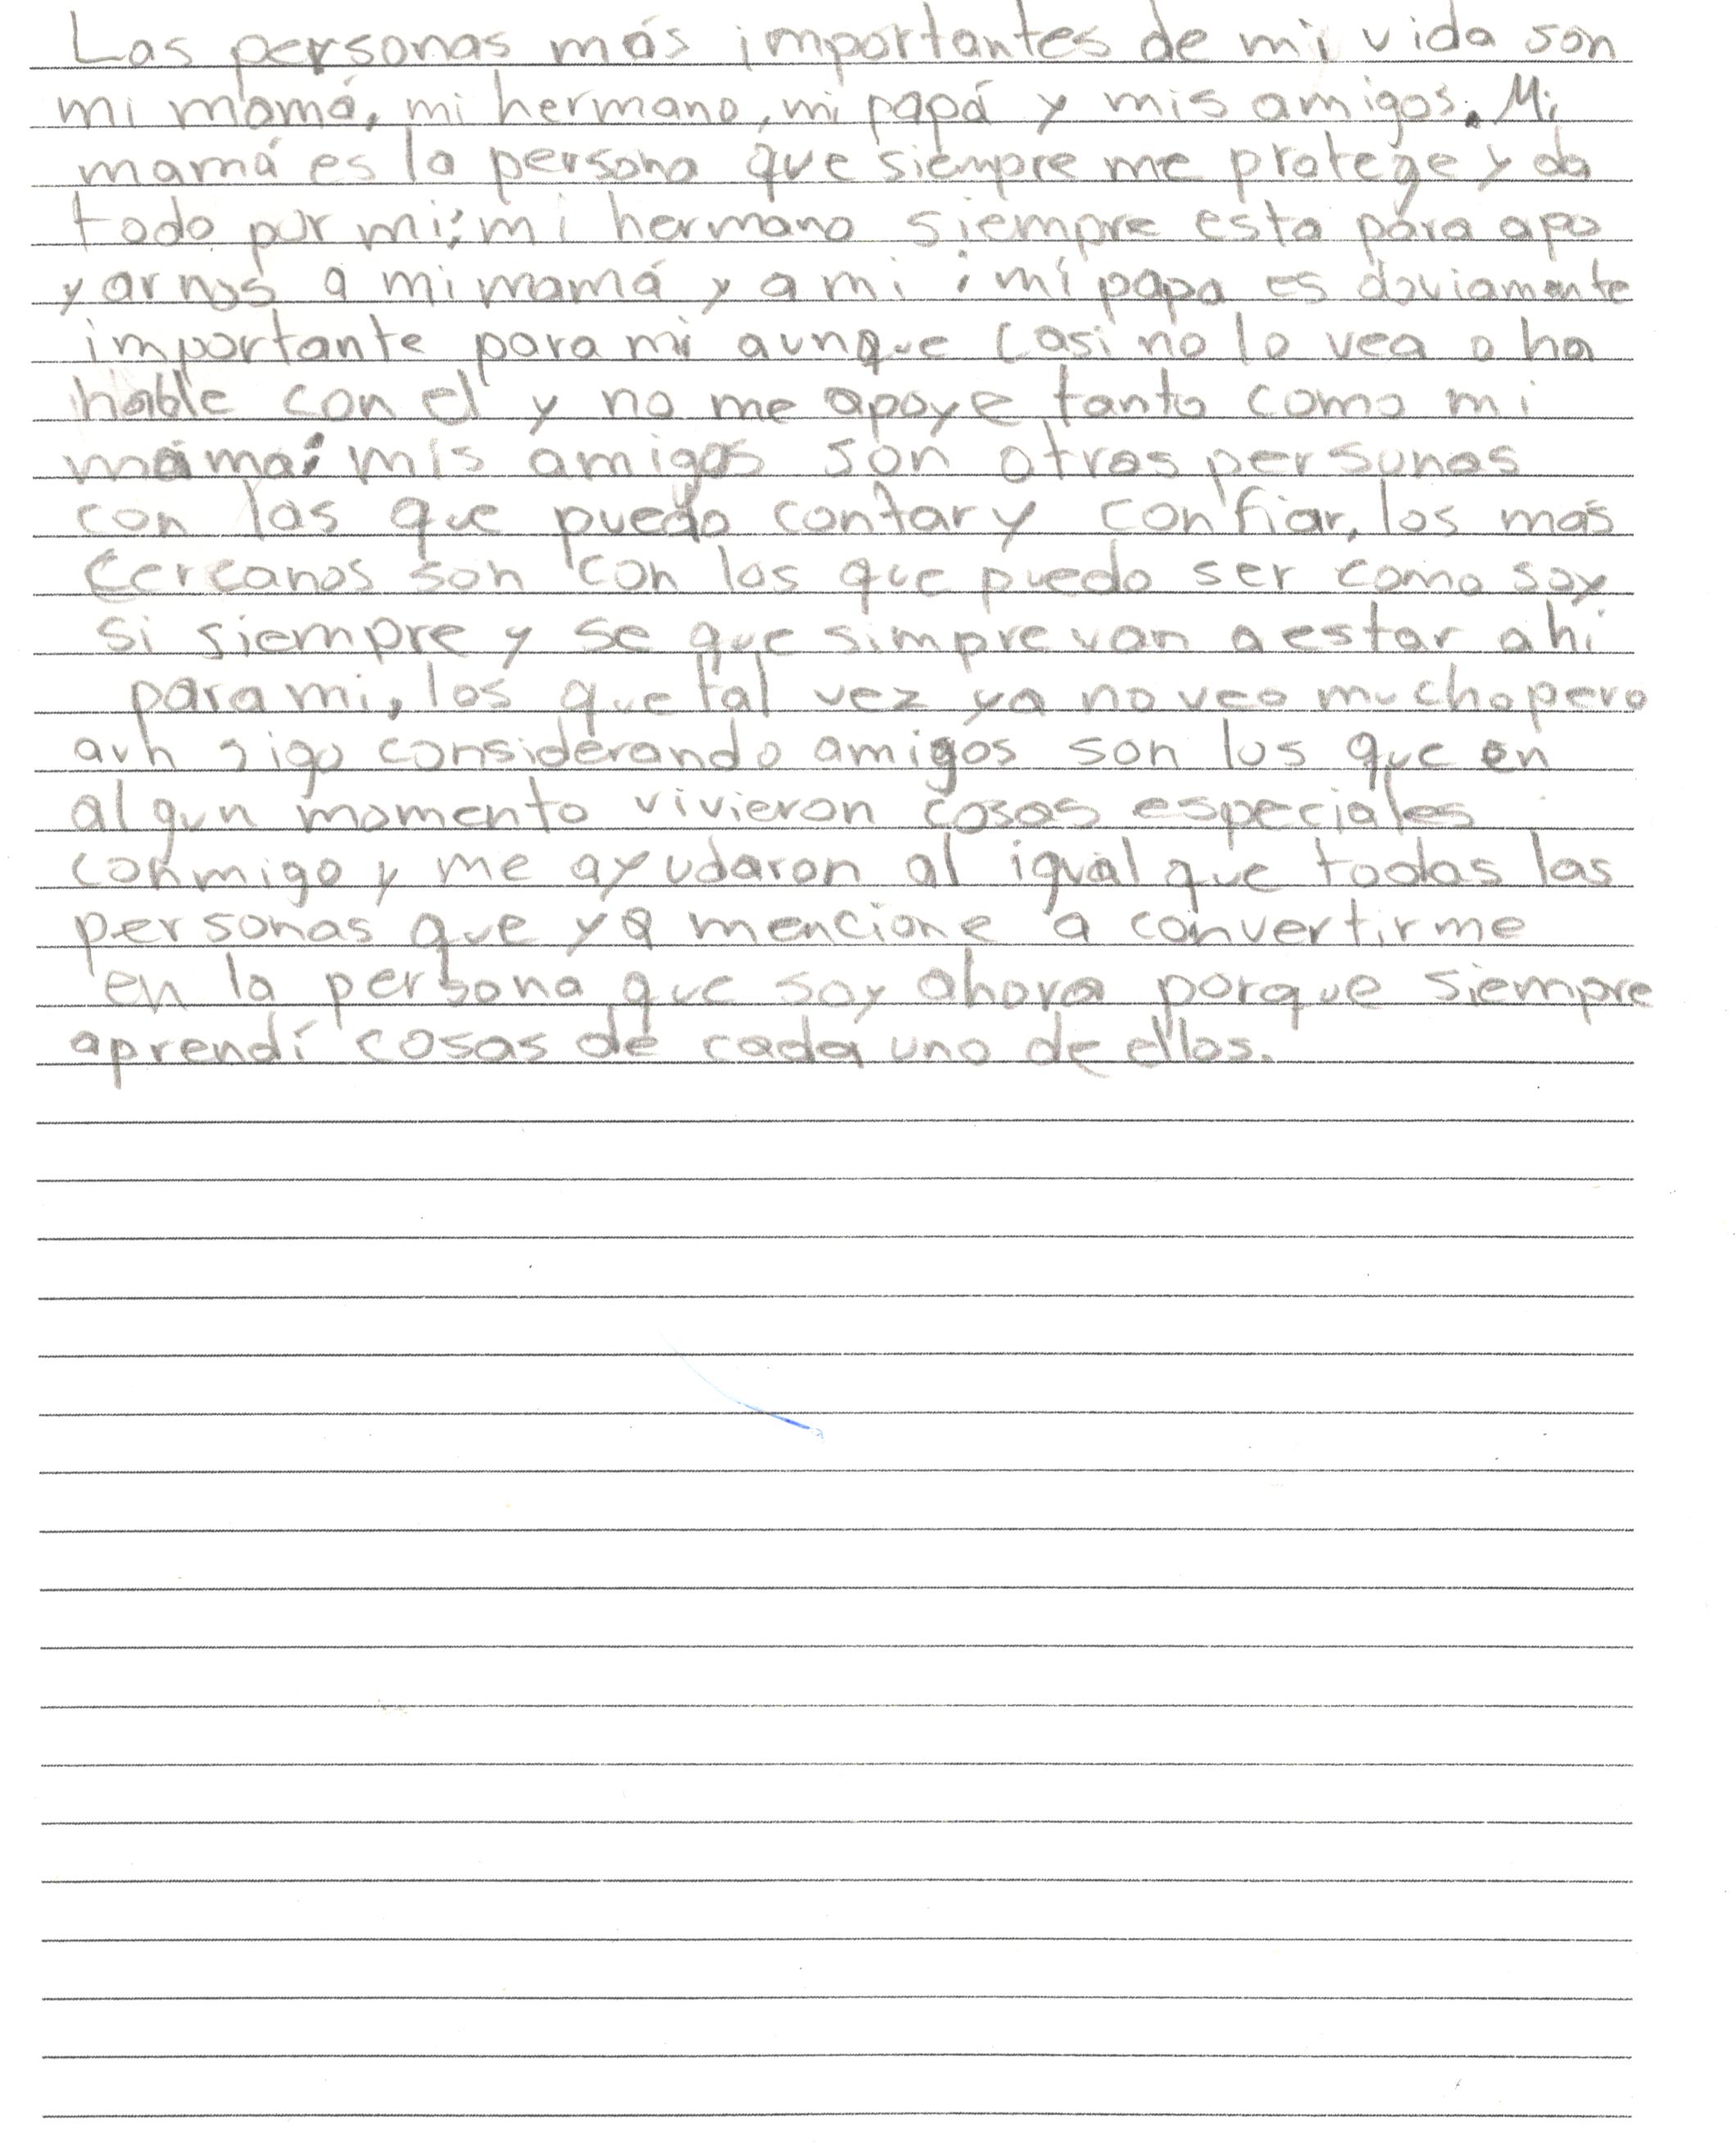 Las personas más importantes de mi vida son
mi mamá, mi hermano, mi papá y mis amigos. Mi
mamá es la persona que siempre me protege y da
todo por mi; mi hermano siempre esta para apo
yarnos a mi mamá y a mi ; mi papa es obviamente
importante para mi aunque casi no lo vea o ha
hable con el y no me apoye tanto como mi
mama; mis amigos son otras personas
con las que puedo contar y confiar, los mas
cercanos son con los que puedo ser como soy
si siempre y se que simpre van a estar ahi
para mi, los que tal vez ya no veo mucho pero
aun sigo considerando amigos son los que en
algun momento vivieron cosas especiales
conmigo y me ayudaron al igual que todas las
personas que ya mencione a convertirme
en la persona que soy ahora porque siempre
aprendí cosas de cada uno de ellos.